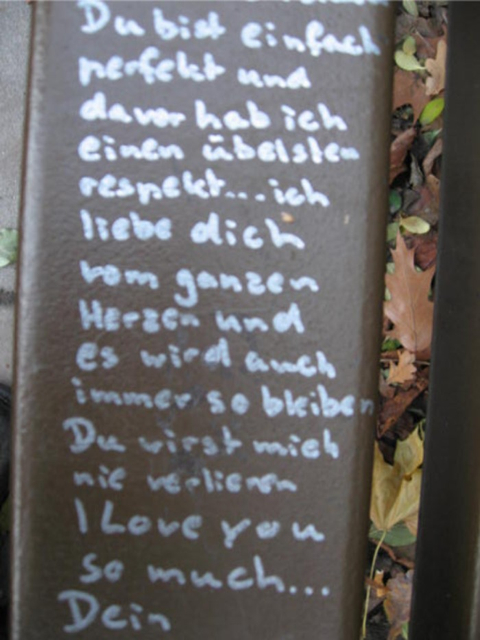 Du bist einfach
perfekt und
davor hab ich
einen übelsten
respekt...ich
liebe dich
vom ganzen
Herzen und
es wird auch
immer so bleiben
Du wirst mich
nie verlieren
I Love you
so much...
Dein